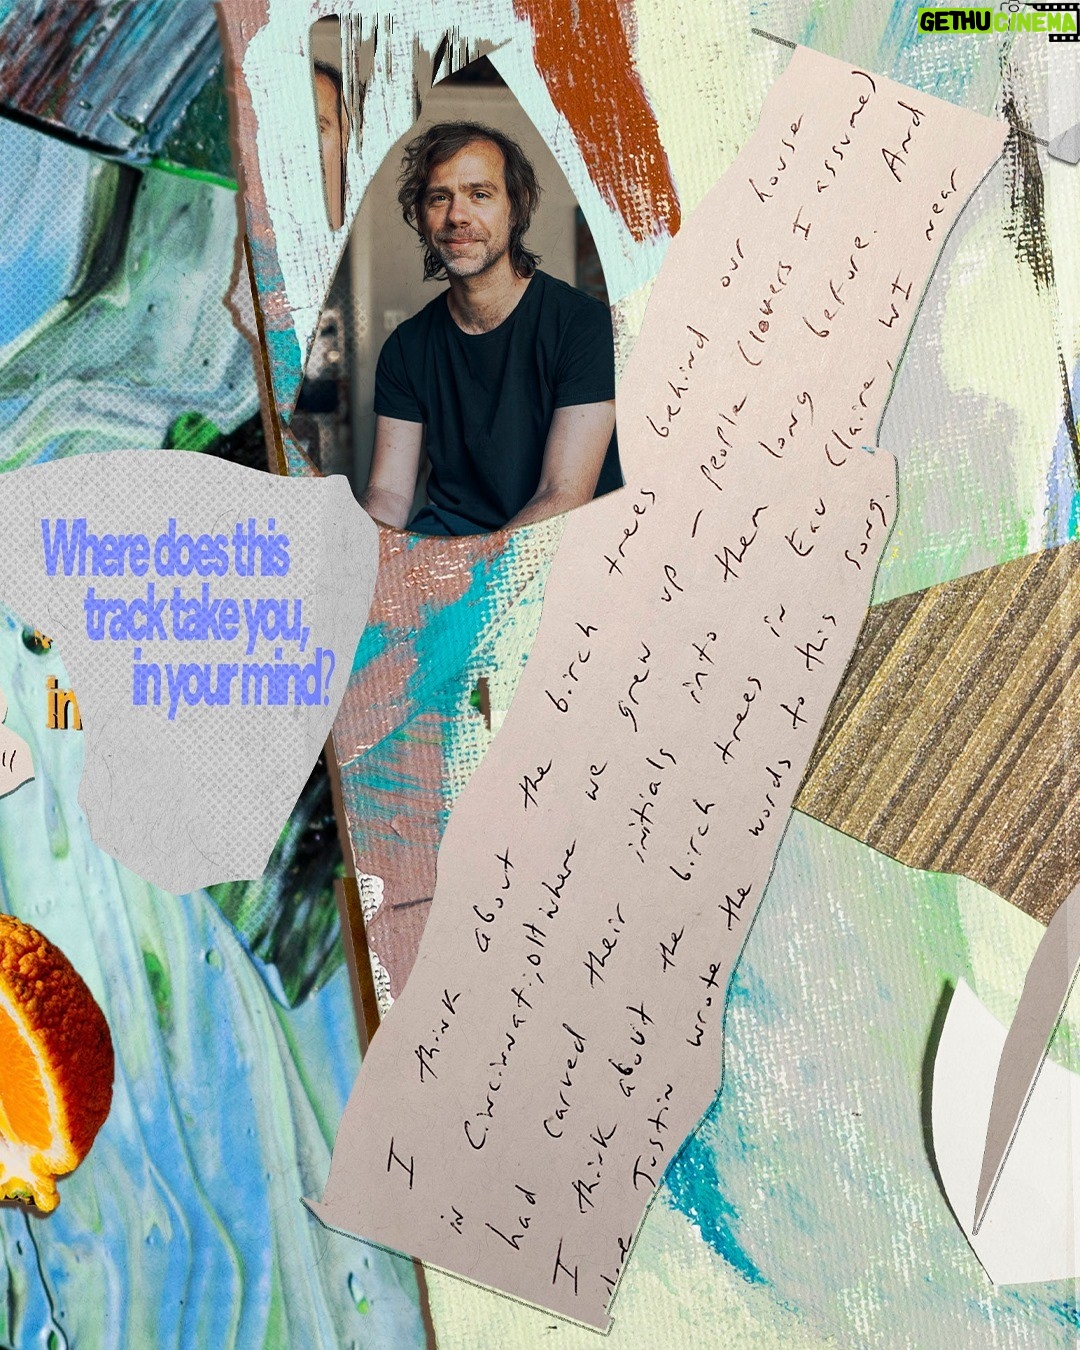 GETHUCINEMA
Where does this
track take you,
in your mind?
in
I think about the birch trees behind our house
in Cincinnati, OH where we grew up – people (lovers I assume)
had carved their initials into them long before. And
I think about the birch trees in Eau Claire, WI near
where Justin wrote the words to this song.